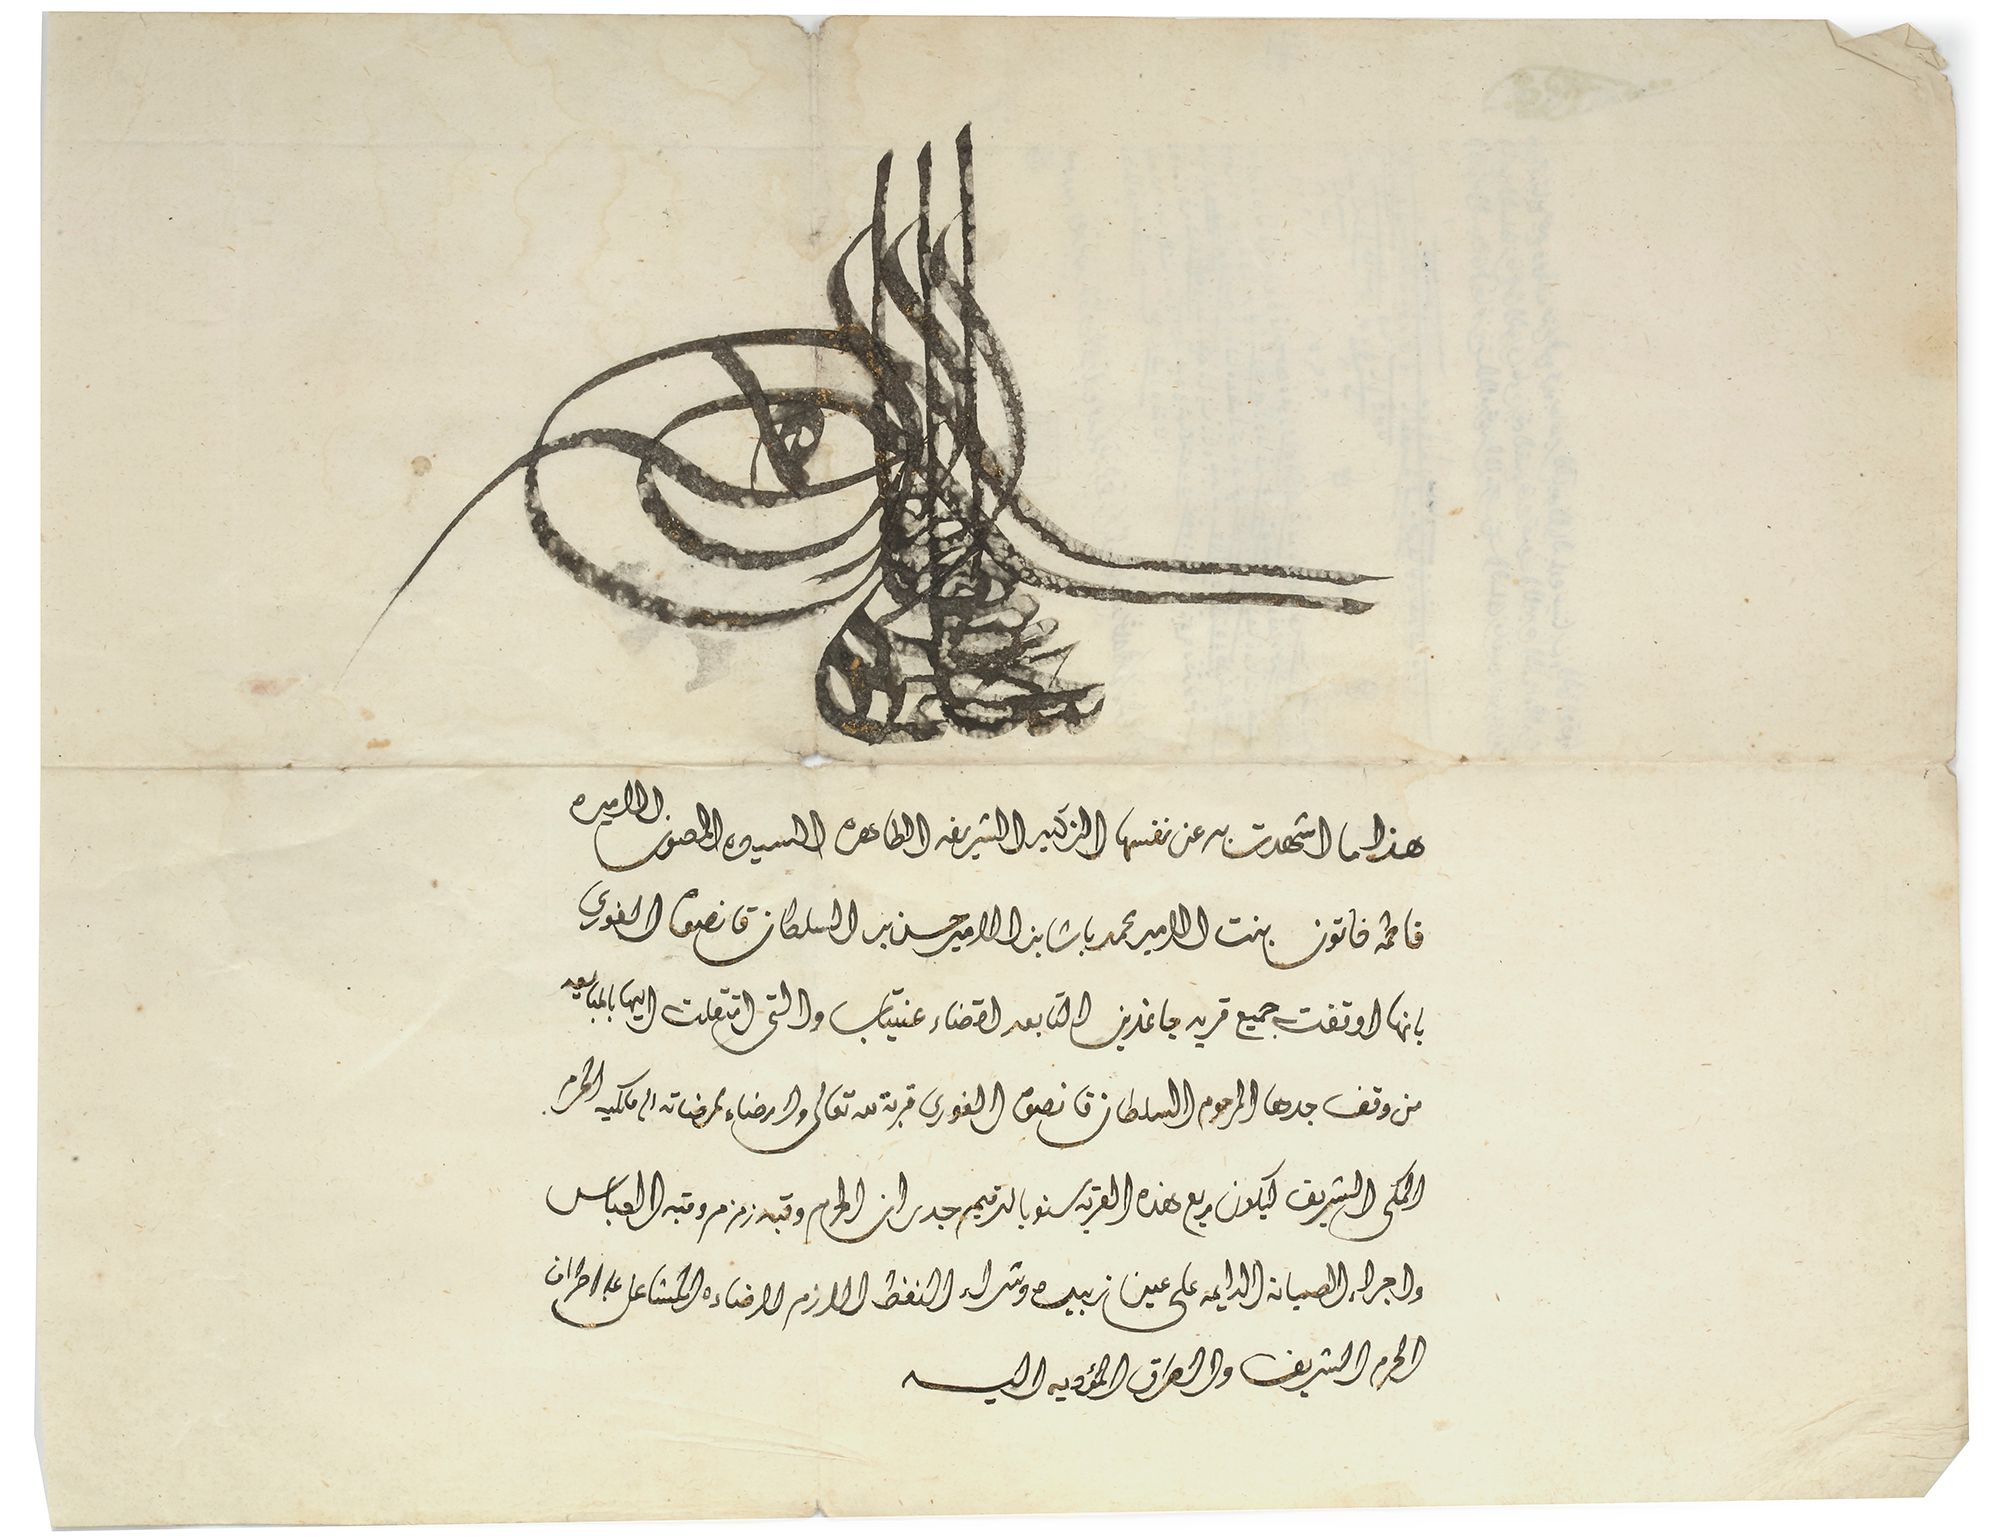 هذا ما اشهدت به عن نفسها الزكيه الشريفه الطاهره السيده المصون الاميره
فاطمه خاتون بنت الامير محمد باشا بن الامير حسن بن السلطان قانصوه الغوري
بانها اوقفت جميع قريه التابعه لقضاء عنيتاب والتي انتقلت اليها بالمبايعه
من وقف جدها المرحوم السلطان قانصوه الغوري قربة لله تعالى وارضاء لمرضاته الى مالكيه الحرم
المكي الشريف ليكون ريع هذه القريه سنويا لترميم جدران الحرم وقبه زمزم وقبه العباس
واجراء الصيانه الدايمه على عين زبيده وشراء النفط اللازم لاضاءه المشاعل على اطراف
الحرم الشريف والطرق المؤديه اليه